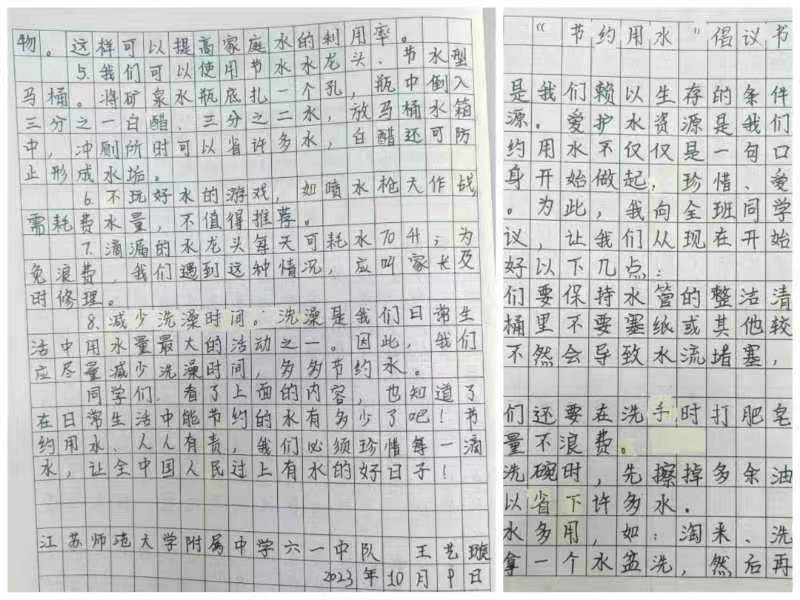 物。这样可以提高家庭水的利用率。
5.我们可以使用节水水龙头、节水型
马桶。将矿泉水瓶底扎一个孔，瓶中倒入
三分之一白醋、三分之二水，放马桶水箱
中，冲厕所时可以省许多水，白醋还可防
止形成水垢。
6.不玩好水的游戏，如喷水枪大作战，
需耗费水量，不值得推荐。
7.滴漏的水龙头每天可耗水70升；为
免浪费，我们遇到这种情况，应叫家长及
时修理。
8.减少洗澡时间。洗澡是我们日常生
活中用水量最大的活动之一。因此，我们
应尽量减少洗澡时间，多多节约水。
同学们，看了上面的内容，也知道了
在日常生活中能节约的水有多少了吧！节
约用水、人人有责，我们必须珍惜每一滴
水，让全中国人民过上有水的好日子！
江苏师范大学附属中学六一中队 王艺璇
2023年10月9日
“节约用水”倡议书
是我们赖以生存的条件
源。爱护水资源是我们
约用水不仅仅是一句口
身开始做起，珍惜、爱
。为此，我向全班同学
议，让我们从现在开始
好以下几点：
们要保持水管的整洁清
桶里不要塞纸或其他较
不然会导致水流堵塞，
们还要在洗手时打肥皂
量不浪费。
洗碗时，先擦掉多余油
以省下许多水。
水多用，如：淘米、洗
拿一个水盆洗，然后再